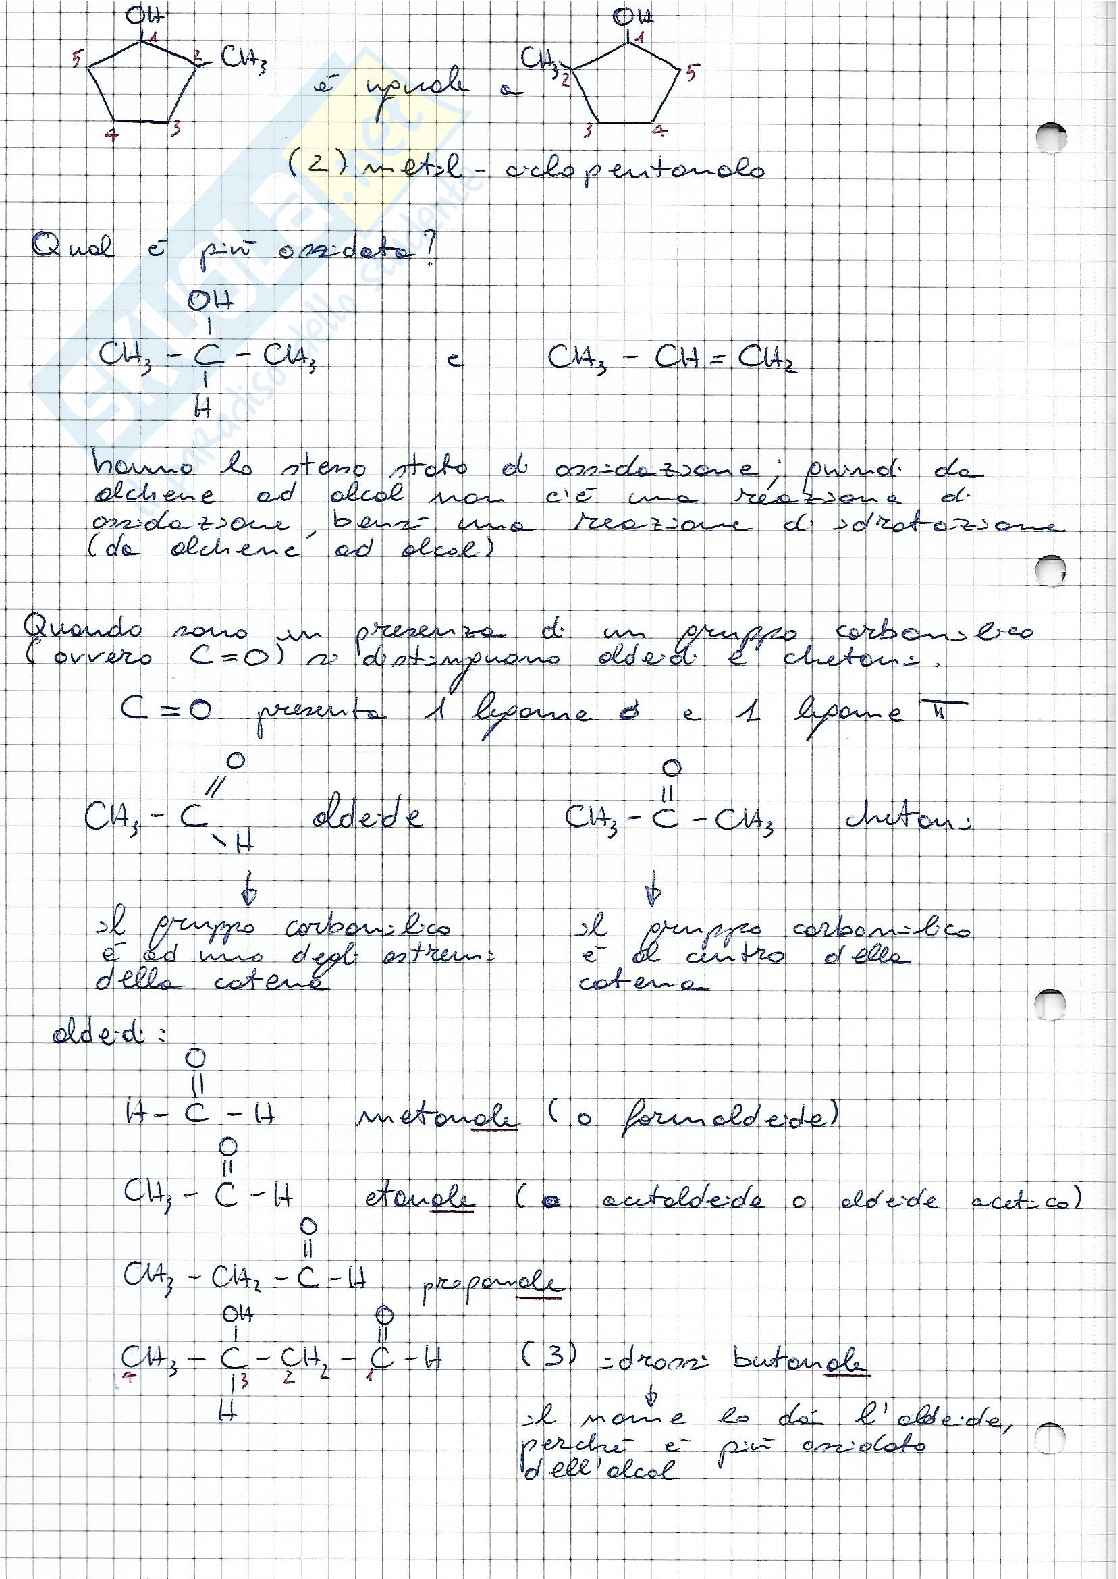 OH OH
1 1
5 2 CH3 CH3 2 5
è uguale a
4 3 3 4
(2) metil - ciclopentanolo
Qual è più ossidata?
OH
CH3 - C - CH3 e CH3 - CH = CH2
H
hanno lo stesso stato di ossidazione; quindi da
alchene ad alcol non c'è una reazione di
ossidazione, bensì una reazione di idratazione
(da alchene ad alcol)
Quando sono in presenza di un gruppo carbonilico
(ovvero C=O) si distinguono aldeidi e chetoni.
C=O presenta 1 legame σ e 1 legame π
O O
CH3 - C aldeide CH3 - C - CH3 chetoni
H
↓ ↓
il gruppo carbonilico il gruppo carbonilico
è ad uno degli estremi è al centro della
della catena catena
aldeidi:
O
H - C - H metanale (o formaldeide)
O
CH3 - C - H etanale (o acetaldeide o aldeide acetica)
O
CH3 - CH2 - C - H propanale
OH O
CH3 - C - CH2 - C - H (3) idrossi butanale
4 3 2 1
H
↓
il nome lo dà l'aldeide,
perché è più ossidato
dell'alcol
SKUOLA.net
il paradiso dello studente